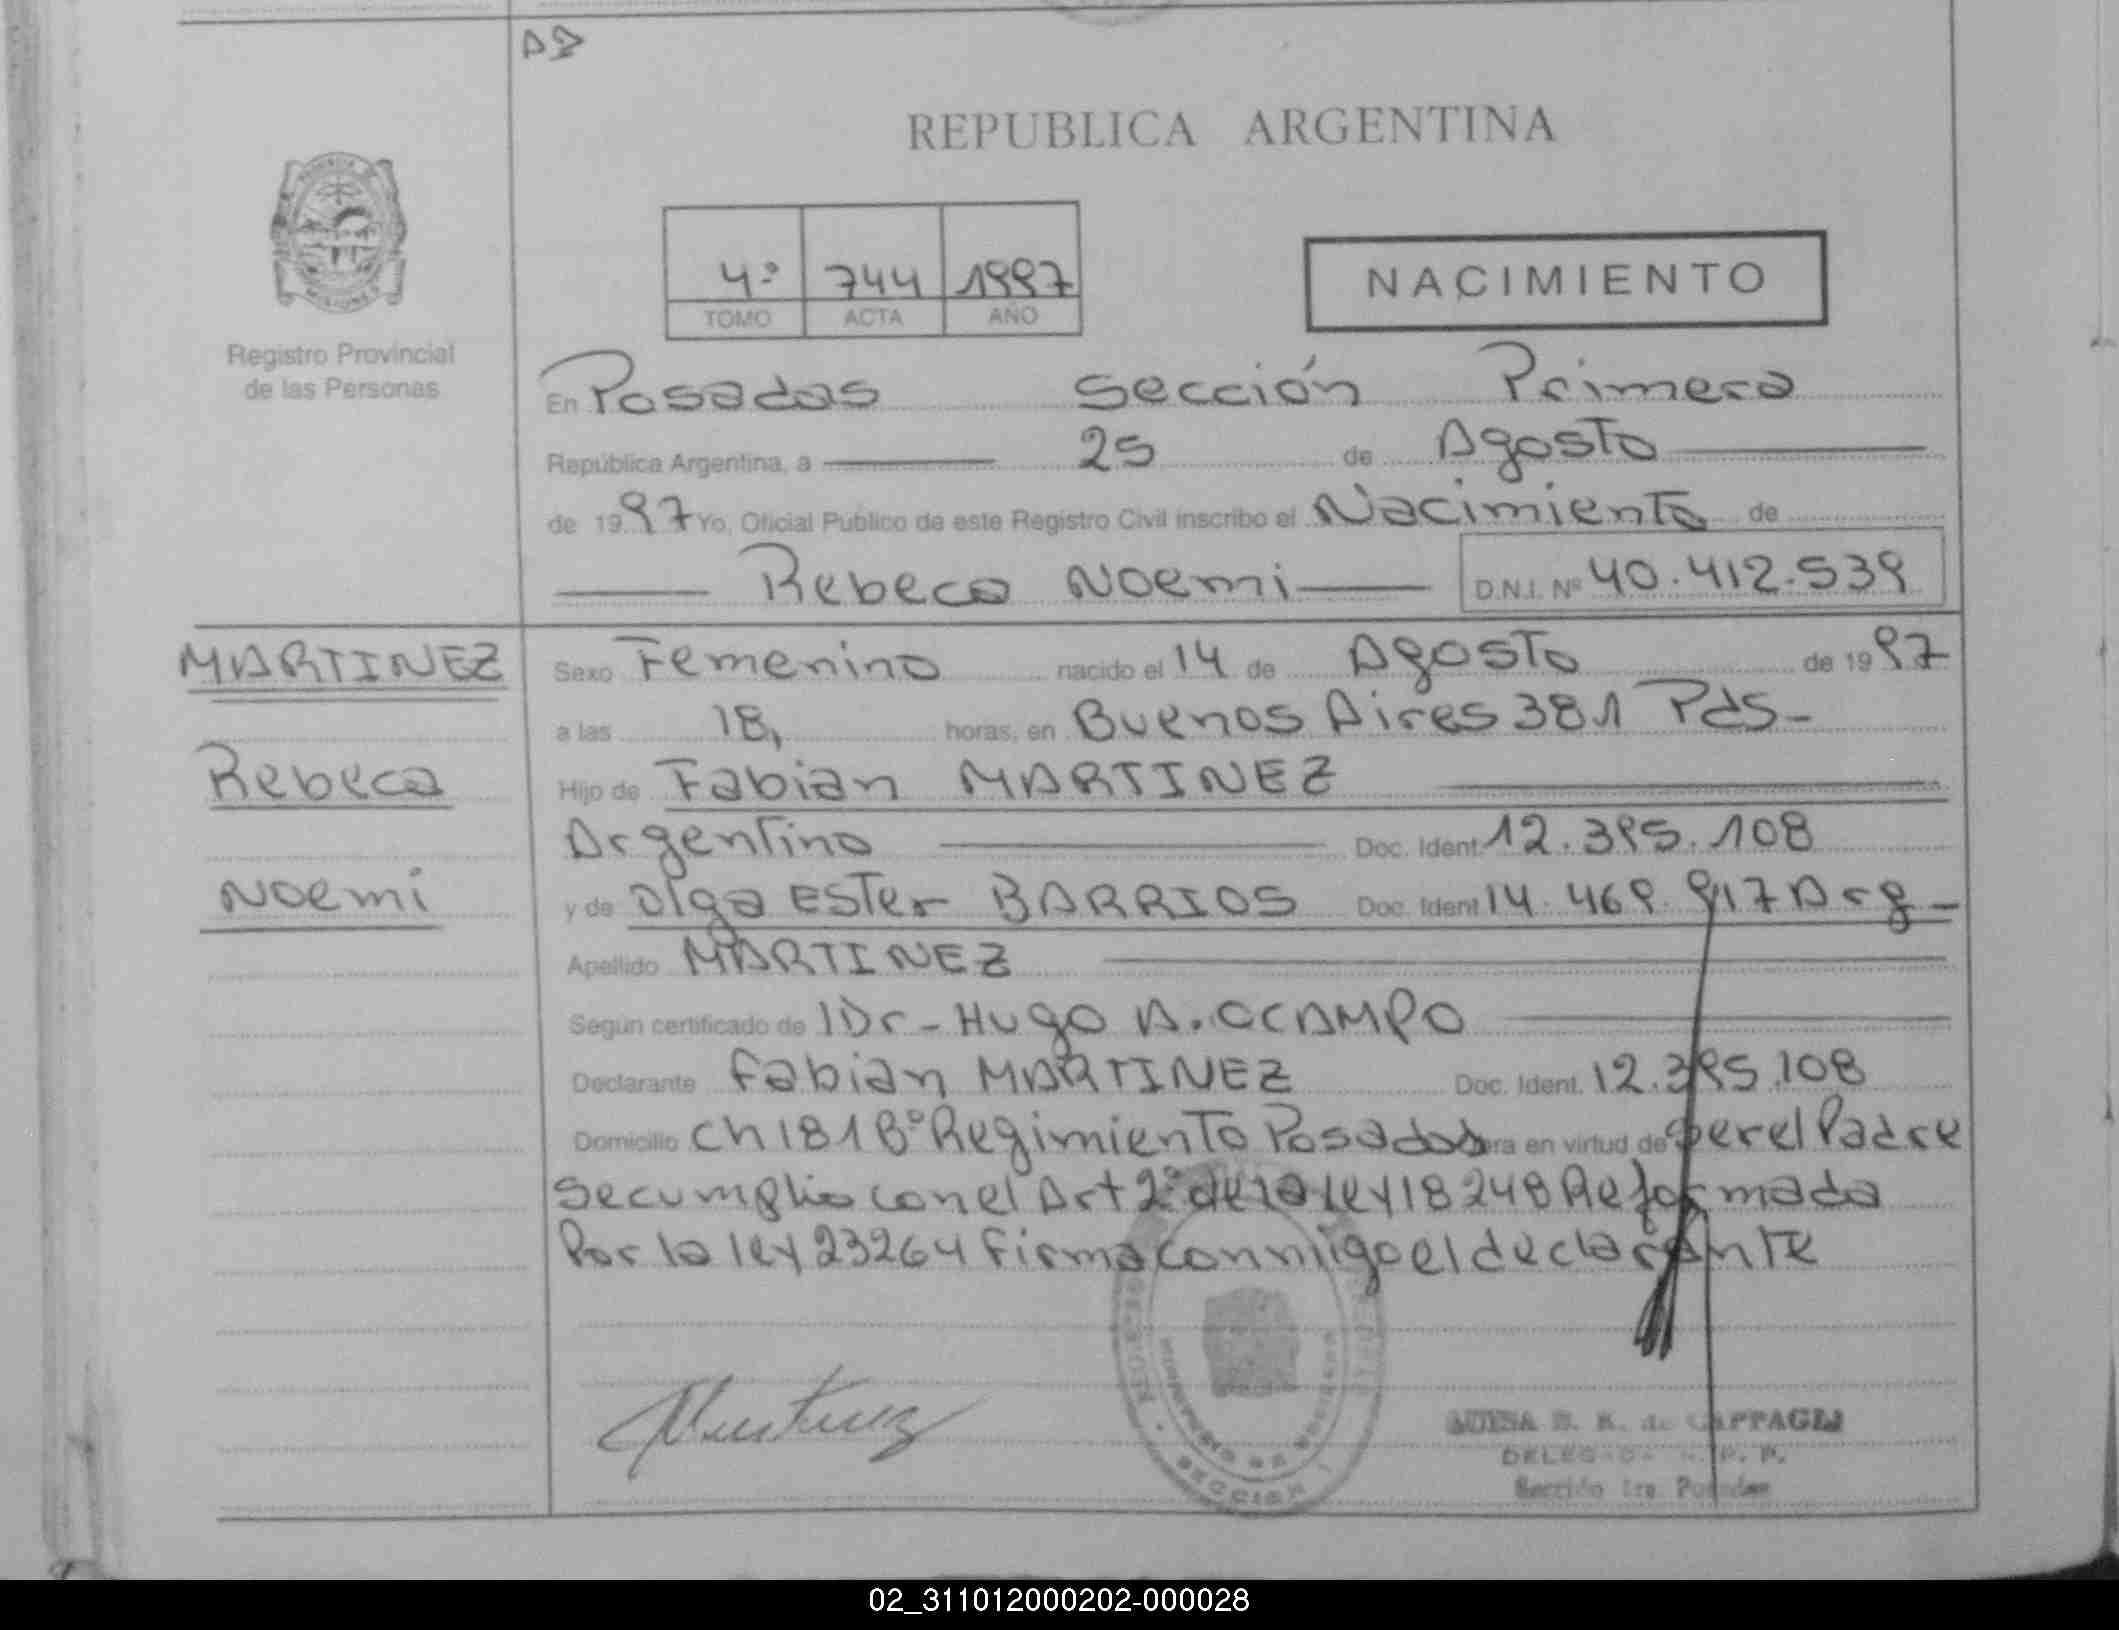 REPUBLICA ARGENTINA
4º 744 1997
TOMO ACTA AÑO
NACIMIENTO
Registro Provincial
de las Personas
En Posadas Sección Primera
República Argentina, a 25 de Agosto
de 1997 Yo, Oficial Público de este Registro Civil inscribo el Nacimiento de
Rebeca Noemi D.N.I. Nº 40.412.539
MARTINEZ
Rebeca
Noemi
Sexo Femenino nacido el 14 de Agosto de 1997
a las 18, horas, en Buenos Aires 381 Pds-
Hijo de Fabian MARTINEZ
Argentino Doc. Ident. 12.395.108
y de Olga Ester BARRIOS Doc. Ident 14.469.917 Arg-
Apellido MARTINEZ
Según certificado de Dr- Hugo A. OCAMPO
Declarante Fabian MARTINEZ Doc. Ident. 12.395.108
Domicilio Ch 181 Bº Regimiento Posadas en virtud de ser el Padre
Se cumplio con el Art 2º de la ley 18248 Reformada
Por la ley 23264 firma conmigo el declarante
Martinez
B. K. de CAPPAGLI
DELEGADA R. P. P.
Sección 1ra Posadas
SECCION 1
02_311012000202-000028